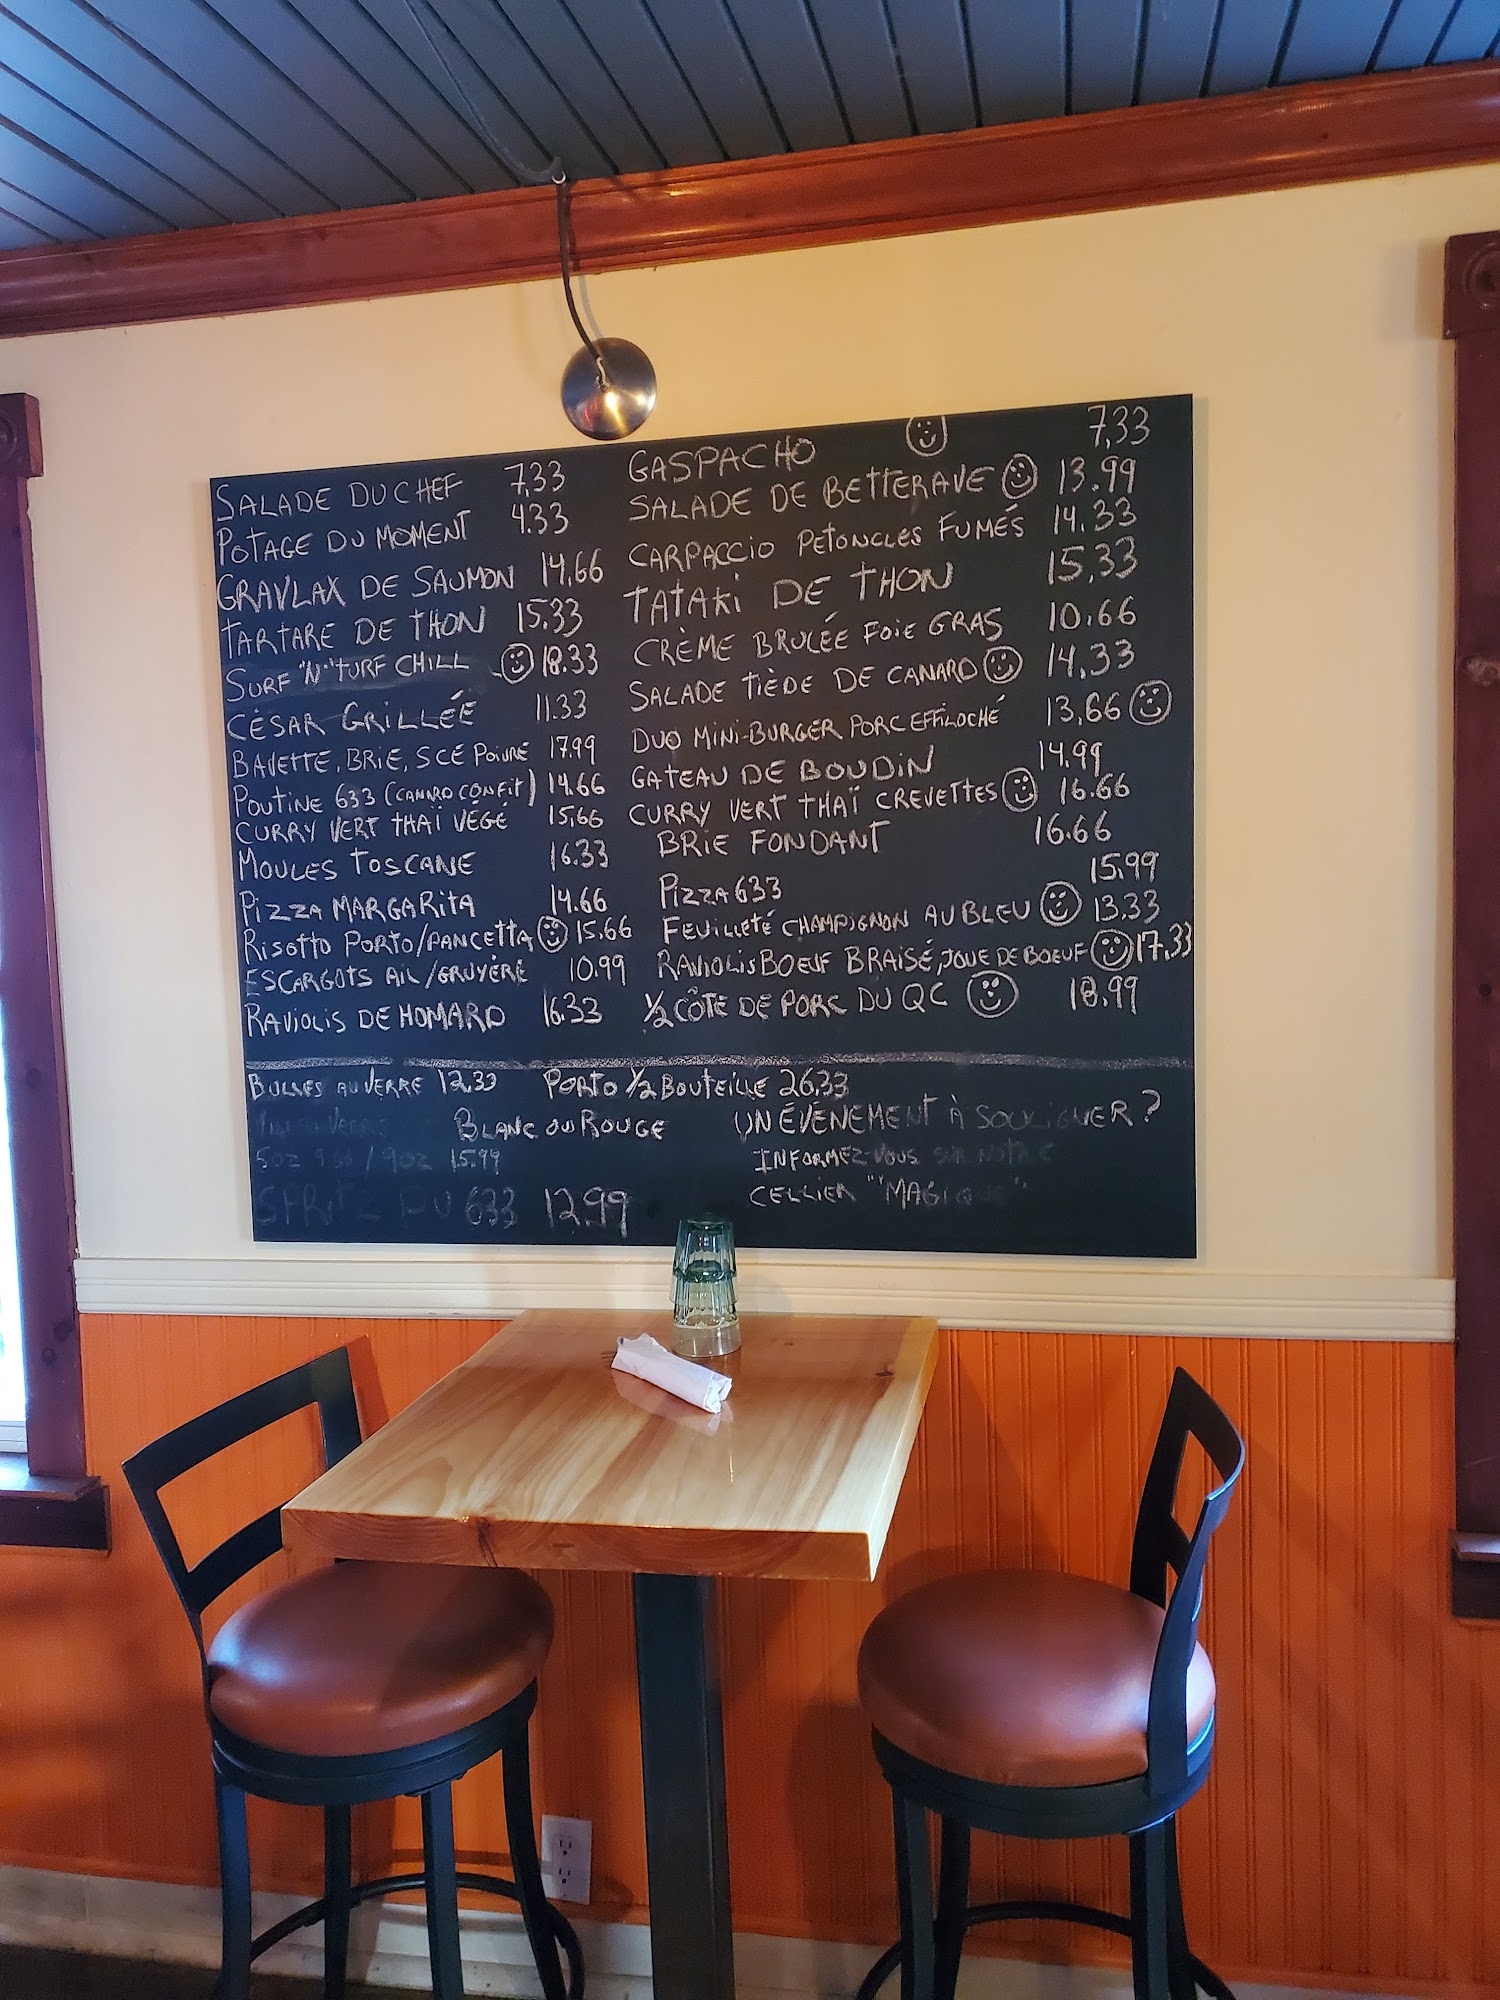 SALADE DU CHEF 7,33
POTAGE DU MOMENT 4.33
GRAVLAX DE SAUMON 14,66
TARTARE DE THON 15.33
SURF "N" TURF CHILL 18.33
CÉSAR GRILLÉE 11.33
BAVETTE, BRIE, SCE POIVRE 17.99
POUTINE 633 (CANARD CONFIT) 14.66
CURRY VERT THAÏ VÉGÉ 15,66
MOULES TOSCANE 16.33
PIZZA MARGARITA 14.66
RISOTTO PORTO/PANCETTA 15.66
ESCARGOTS AIL/GRUYÈRE 10.99
RAVIOLIS DE HOMARD 16.33
GASPACHO 7,33
SALADE DE BETTERAVE 13.99
CARPACCIO PETONCLES FUMÉS 14.33
TATAKI DE THON 15,33
CRÈME BRULÉE FOIE GRAS 10.66
SALADE TIÈDE DE CANARD 14,33
DUO MINI-BURGER PORC EFFILOCHÉ 13,66
GATEAU DE BOUDIN 14.99
CURRY VERT THAÏ CREVETTES 16.66
BRIE FONDANT 16.66
PIZZA 633 15,99
FEUILLETÉ CHAMPIGNON AU BLEU 13.33
RAVIOLIS BOEUF BRAISÉ, JOUE DE BOEUF 17,33
1/2 CÔTE DE PORC DU QC 18.99
BULLES AU VERRE 12.33 PORTO 1/2 BOUTEILLE 26,33
VIN AU VERRE BLANC OU ROUGE
5OZ 9.66 / 9OZ 15.99
SPRITZ DU 633 12.99
UN ÉVÉNEMENT À SOULIGNER ?
INFORMEZ-VOUS SUR NOTRE
CELLIER "MAGIQUE"